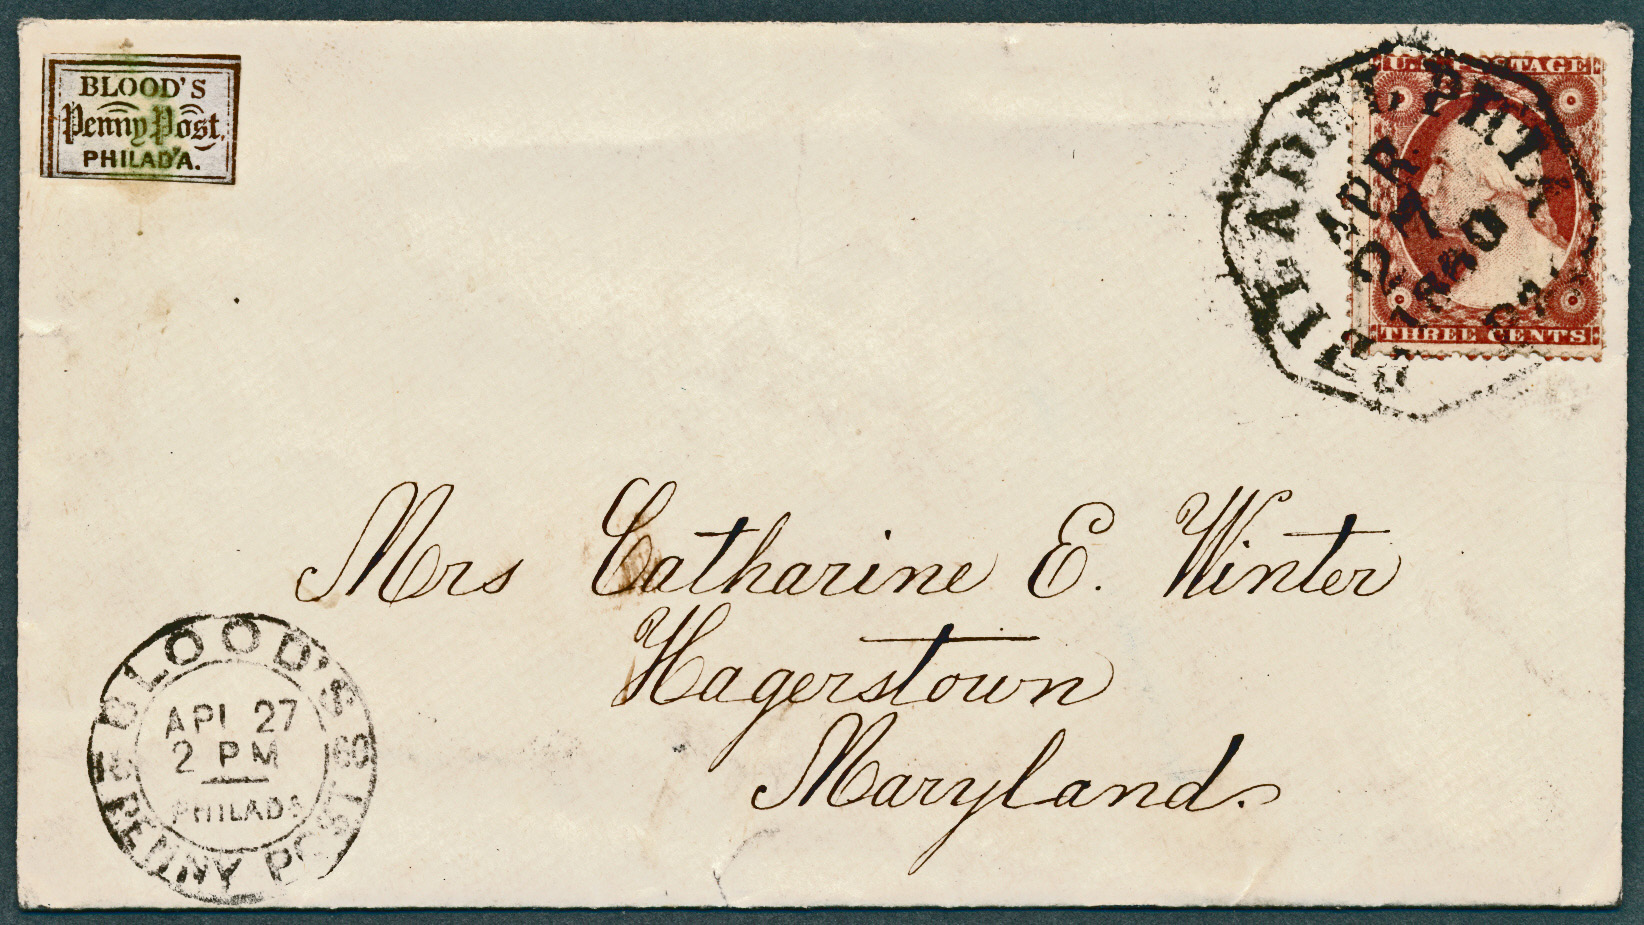 BLOOD'S
Penny Post,
PHILAD'A.
U.S. POSTAGE
THREE CENTS
PHILADEL'PHIA
APR
27
1860
Pa.
Mrs Catharine E. Winter
Hagerstown
Maryland.
BLOOD'S
APL 27
2 PM
PHILADA
PENNY POST